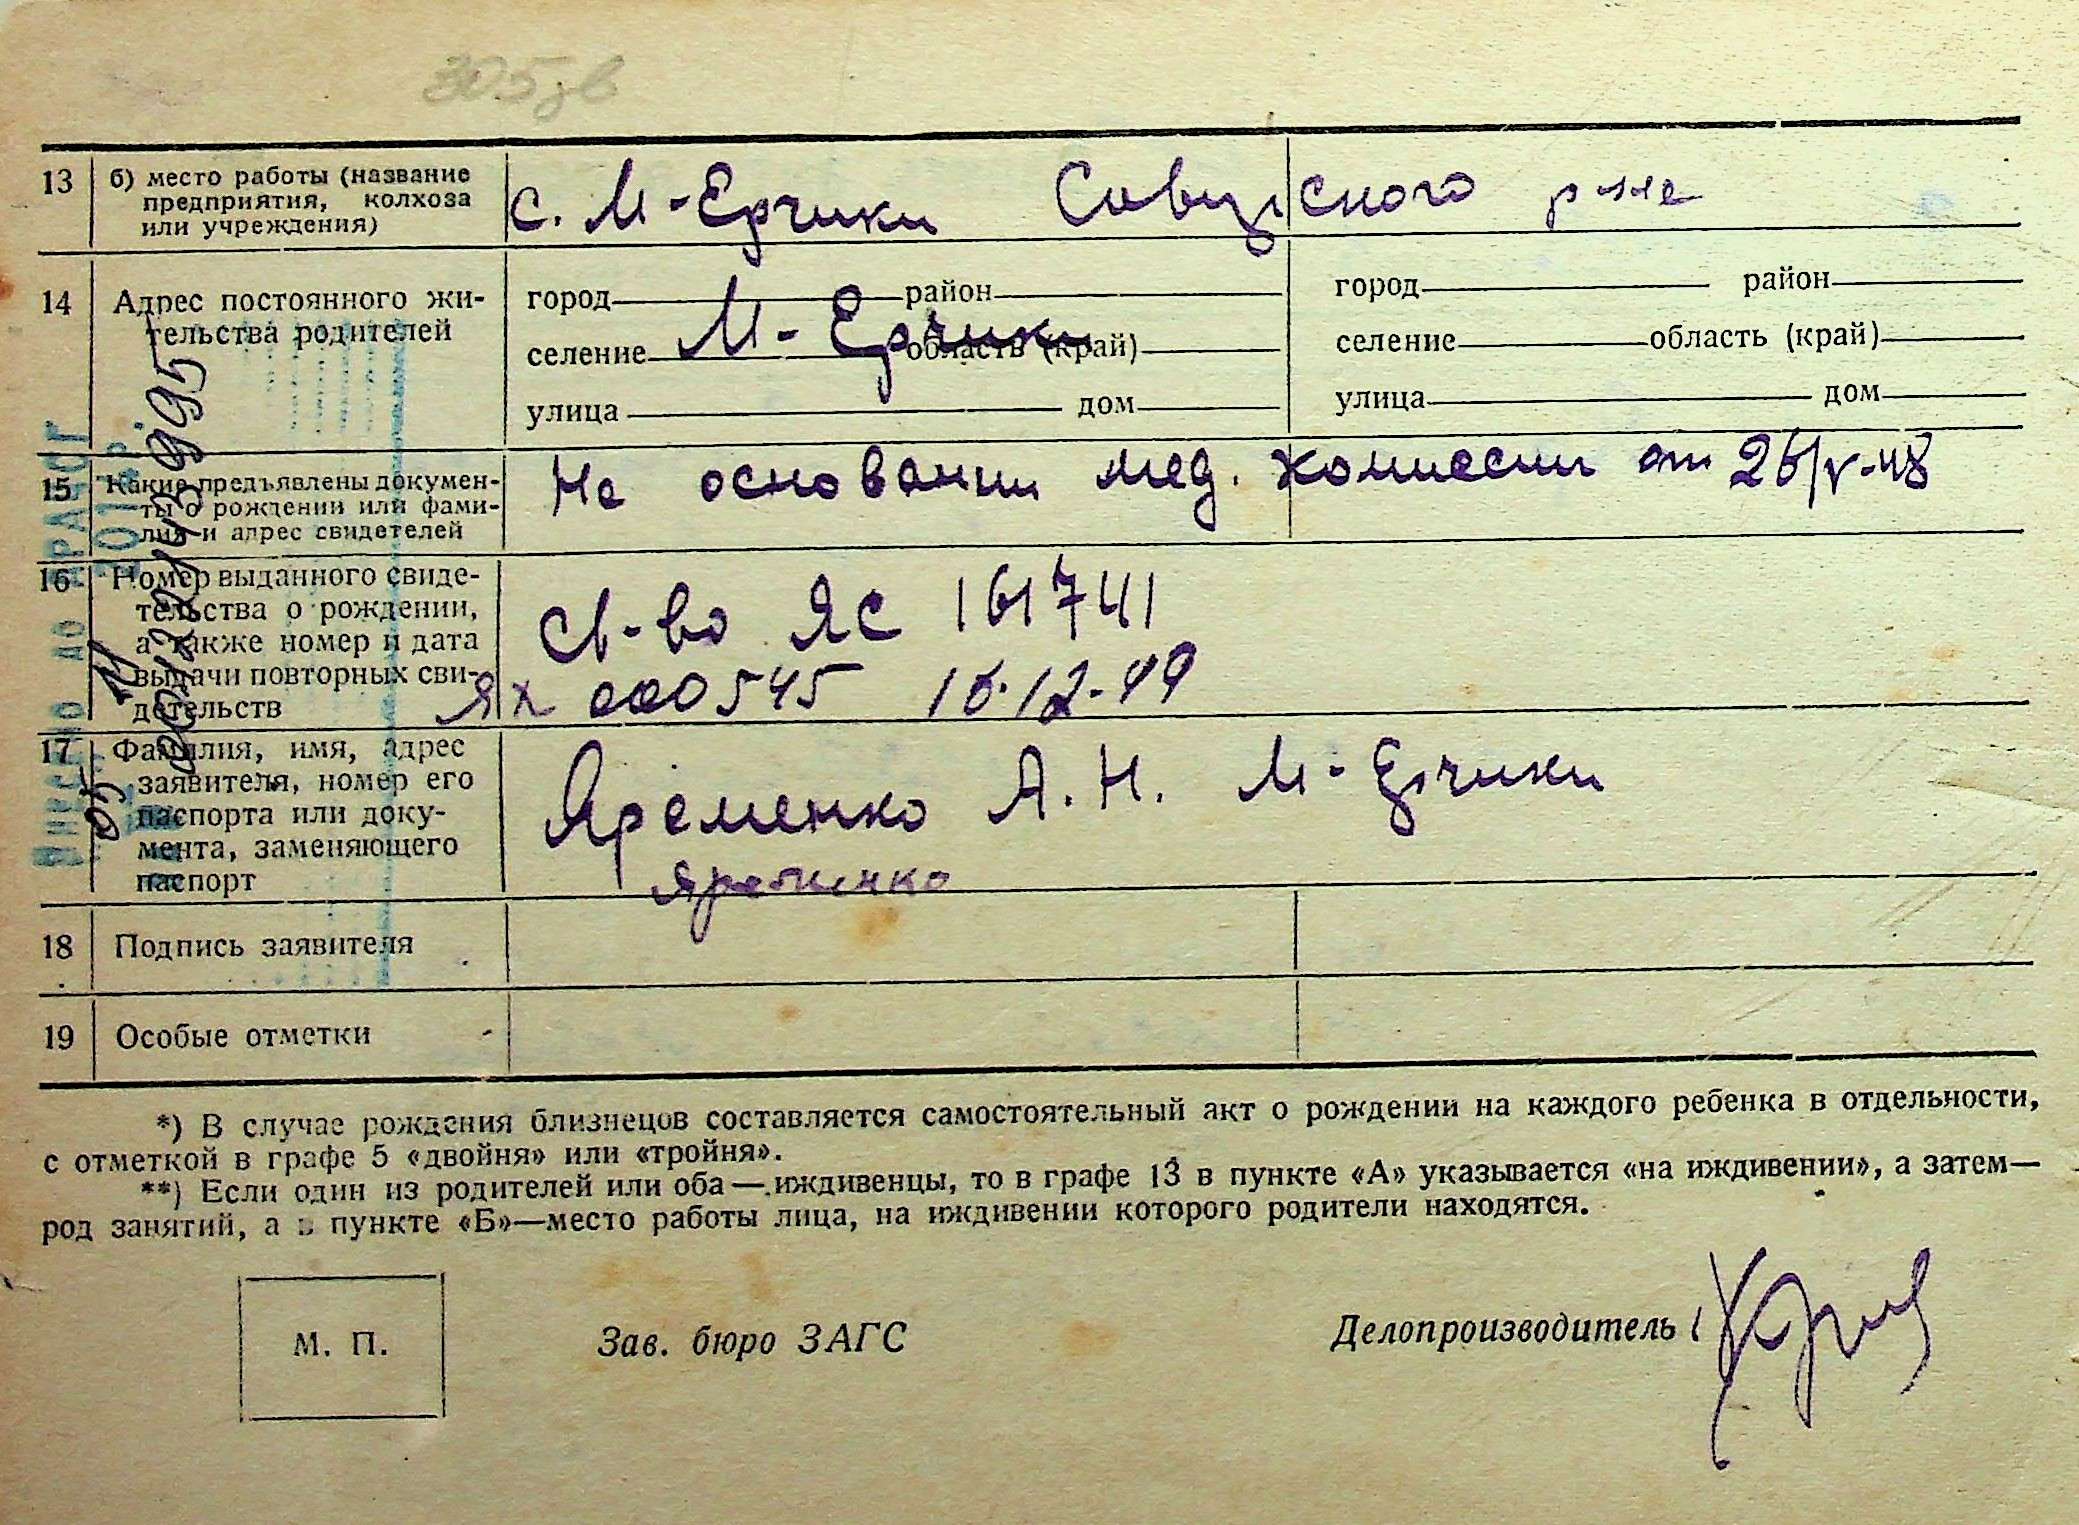 13 б) место работы (название
предприятия, колхоза
или учреждения)
с. М-Ерчики
14 Адрес постоянного жи-
тельства родителей
город район
селение М-Ерчики область (край)
улица дом
город район
селение область (край)
улица дом
15 Какие предъявлены докумен-
ты о рождении или фами-
лия и адрес свидетелей
На основании мед. комиссии от
16 Номер выданного свиде-
тельства о рождении,
а также номер и дата
выдачи повторных сви-
детельств
св-во ЯС 161741
ЯХ 000545
17 Фамилия, имя, адрес
заявителя, номер его
паспорта или доку-
мента, заменяющего
паспорт
Яременко А. Н. М-Ерчики
Яременко
18 Подпись заявителя
19 Особые отметки
*) В случае рождения близнецов составляется самостоятельный акт о рождении на каждого ребенка в отдельности,
с отметкой в графе 5 «двойня» или «тройня».
**) Если один из родителей или оба—иждивенцы, то в графе 13 в пункте «А» указывается «на иждивении», а затем—
род занятий, а в пункте «Б»—место работы лица, на иждивении которого родители находятся.
М. П.
Зав. бюро ЗАГС
Делопроизводитель